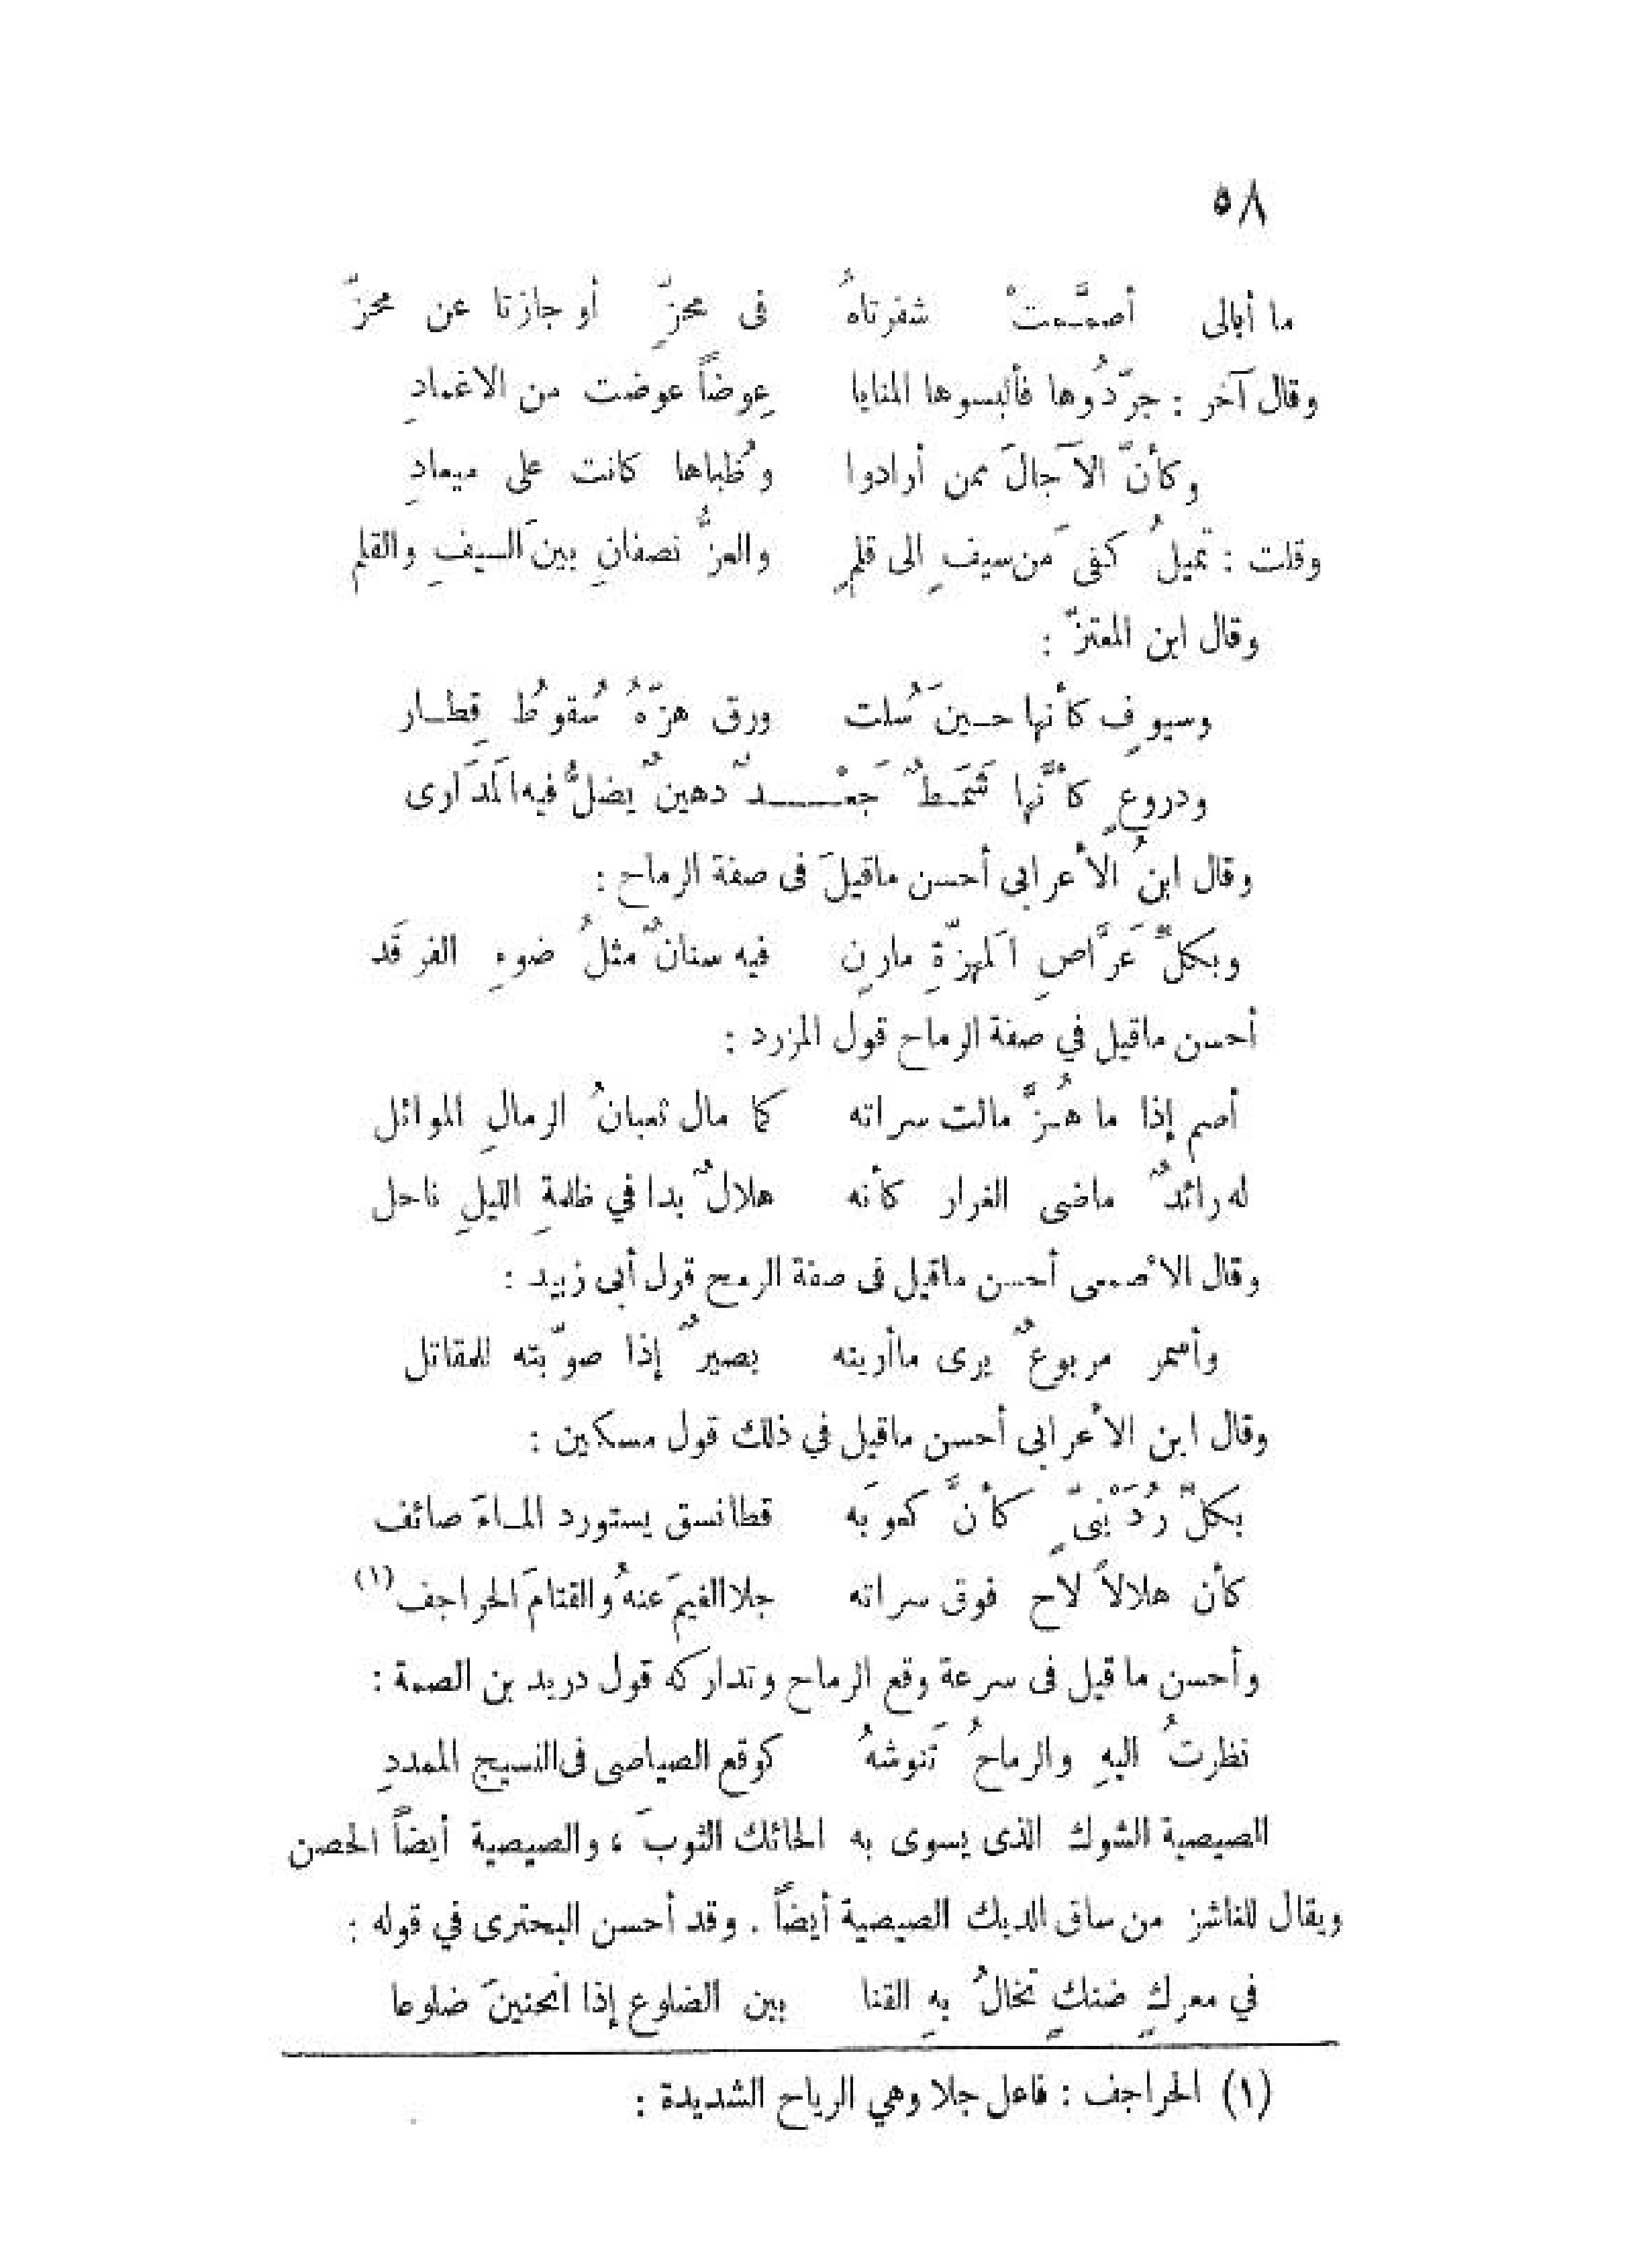 ٥٨
ما أبالى أصمَّمتْ شفرتاهُ فى محزٍّ أو جازتا عن محزّ
وقال آخر : جرّدُوها فألبسوها المنايا عِوضاً عوضت من الاغمادِ
وكأنّ الآجالَ ممن أرادوا وُظباها كانت على ميعادِ
وقلت : تميلُ كفى من سيفٍ الى قلمٍ والعزُّ نصفانِ بين السيفِ والقلم
وقال ابن المعتزّ :
وسيوفٍ كأنها حـين سُلت ورق هزّهُ سُقوطُ قِطـار
ودروعٍ كأنَّها شَمَطٌ جَعْـــدٌ دهينٌ يُضلُّ فيه المَدَارى
وقال ابنُ الأعرابى أحسن ماقيلَ فى صفة الرماح :
وبكلِّ عَرَّاصِ المَهزّةِ مارنٍ فيه سنانٌ مثلُ ضوءِ الفرقَد
أحسن ماقيل في صفة الرماح قول المزرد :
أصم إذا ما هُـزَّ مالت سراته كما مال ثعبانُ الرمالِ الموائل
له رائدٌ ماضى الغرار كأنه هلالٌ بدا في ظلمةِ الليلِ ناحل
وقال الأصمعى أحسن ماقيل فى صفة الرمح قول أبى زبيد :
وأسمر مربوعٌ يرى ماأريته بصيرٌ إذا صوّبته للمقاتل
وقال ابن الأعرابى أحسن ماقيل في ذلك قول مسكين :
بكلِّ رُدَيْنىٍّ كأنَّ كعوبَه قطانسق يستورد المـاءَ صائف
كأن هلالاً لاح فوق سراته جلا الغيمَ عنهُ والقتامَ الحراجف (١)
وأحسن ما قيل فى سرعة وقع الرماح وتداركه قول دريد بن الصمة :
نظرتُ اليهِ والرماحُ تَنوشهُ كوقع الصياصى فى النسيج الممددِ
الصيصية الشوك الذى يسوى به الحائك الثوبَ ، والصيصية أيضاً الحصن
ويقال للناشز من ساق الديك الصيصية أيضاً . وقد أحسن البحترى في قوله :
في معركٍ ضنكٍ تخالُ بهِ القنا بين الضلوع إذا انحنينَ ضلوعا
(١) الحراجف : فاعل جلا وهي الرياح الشديدة :